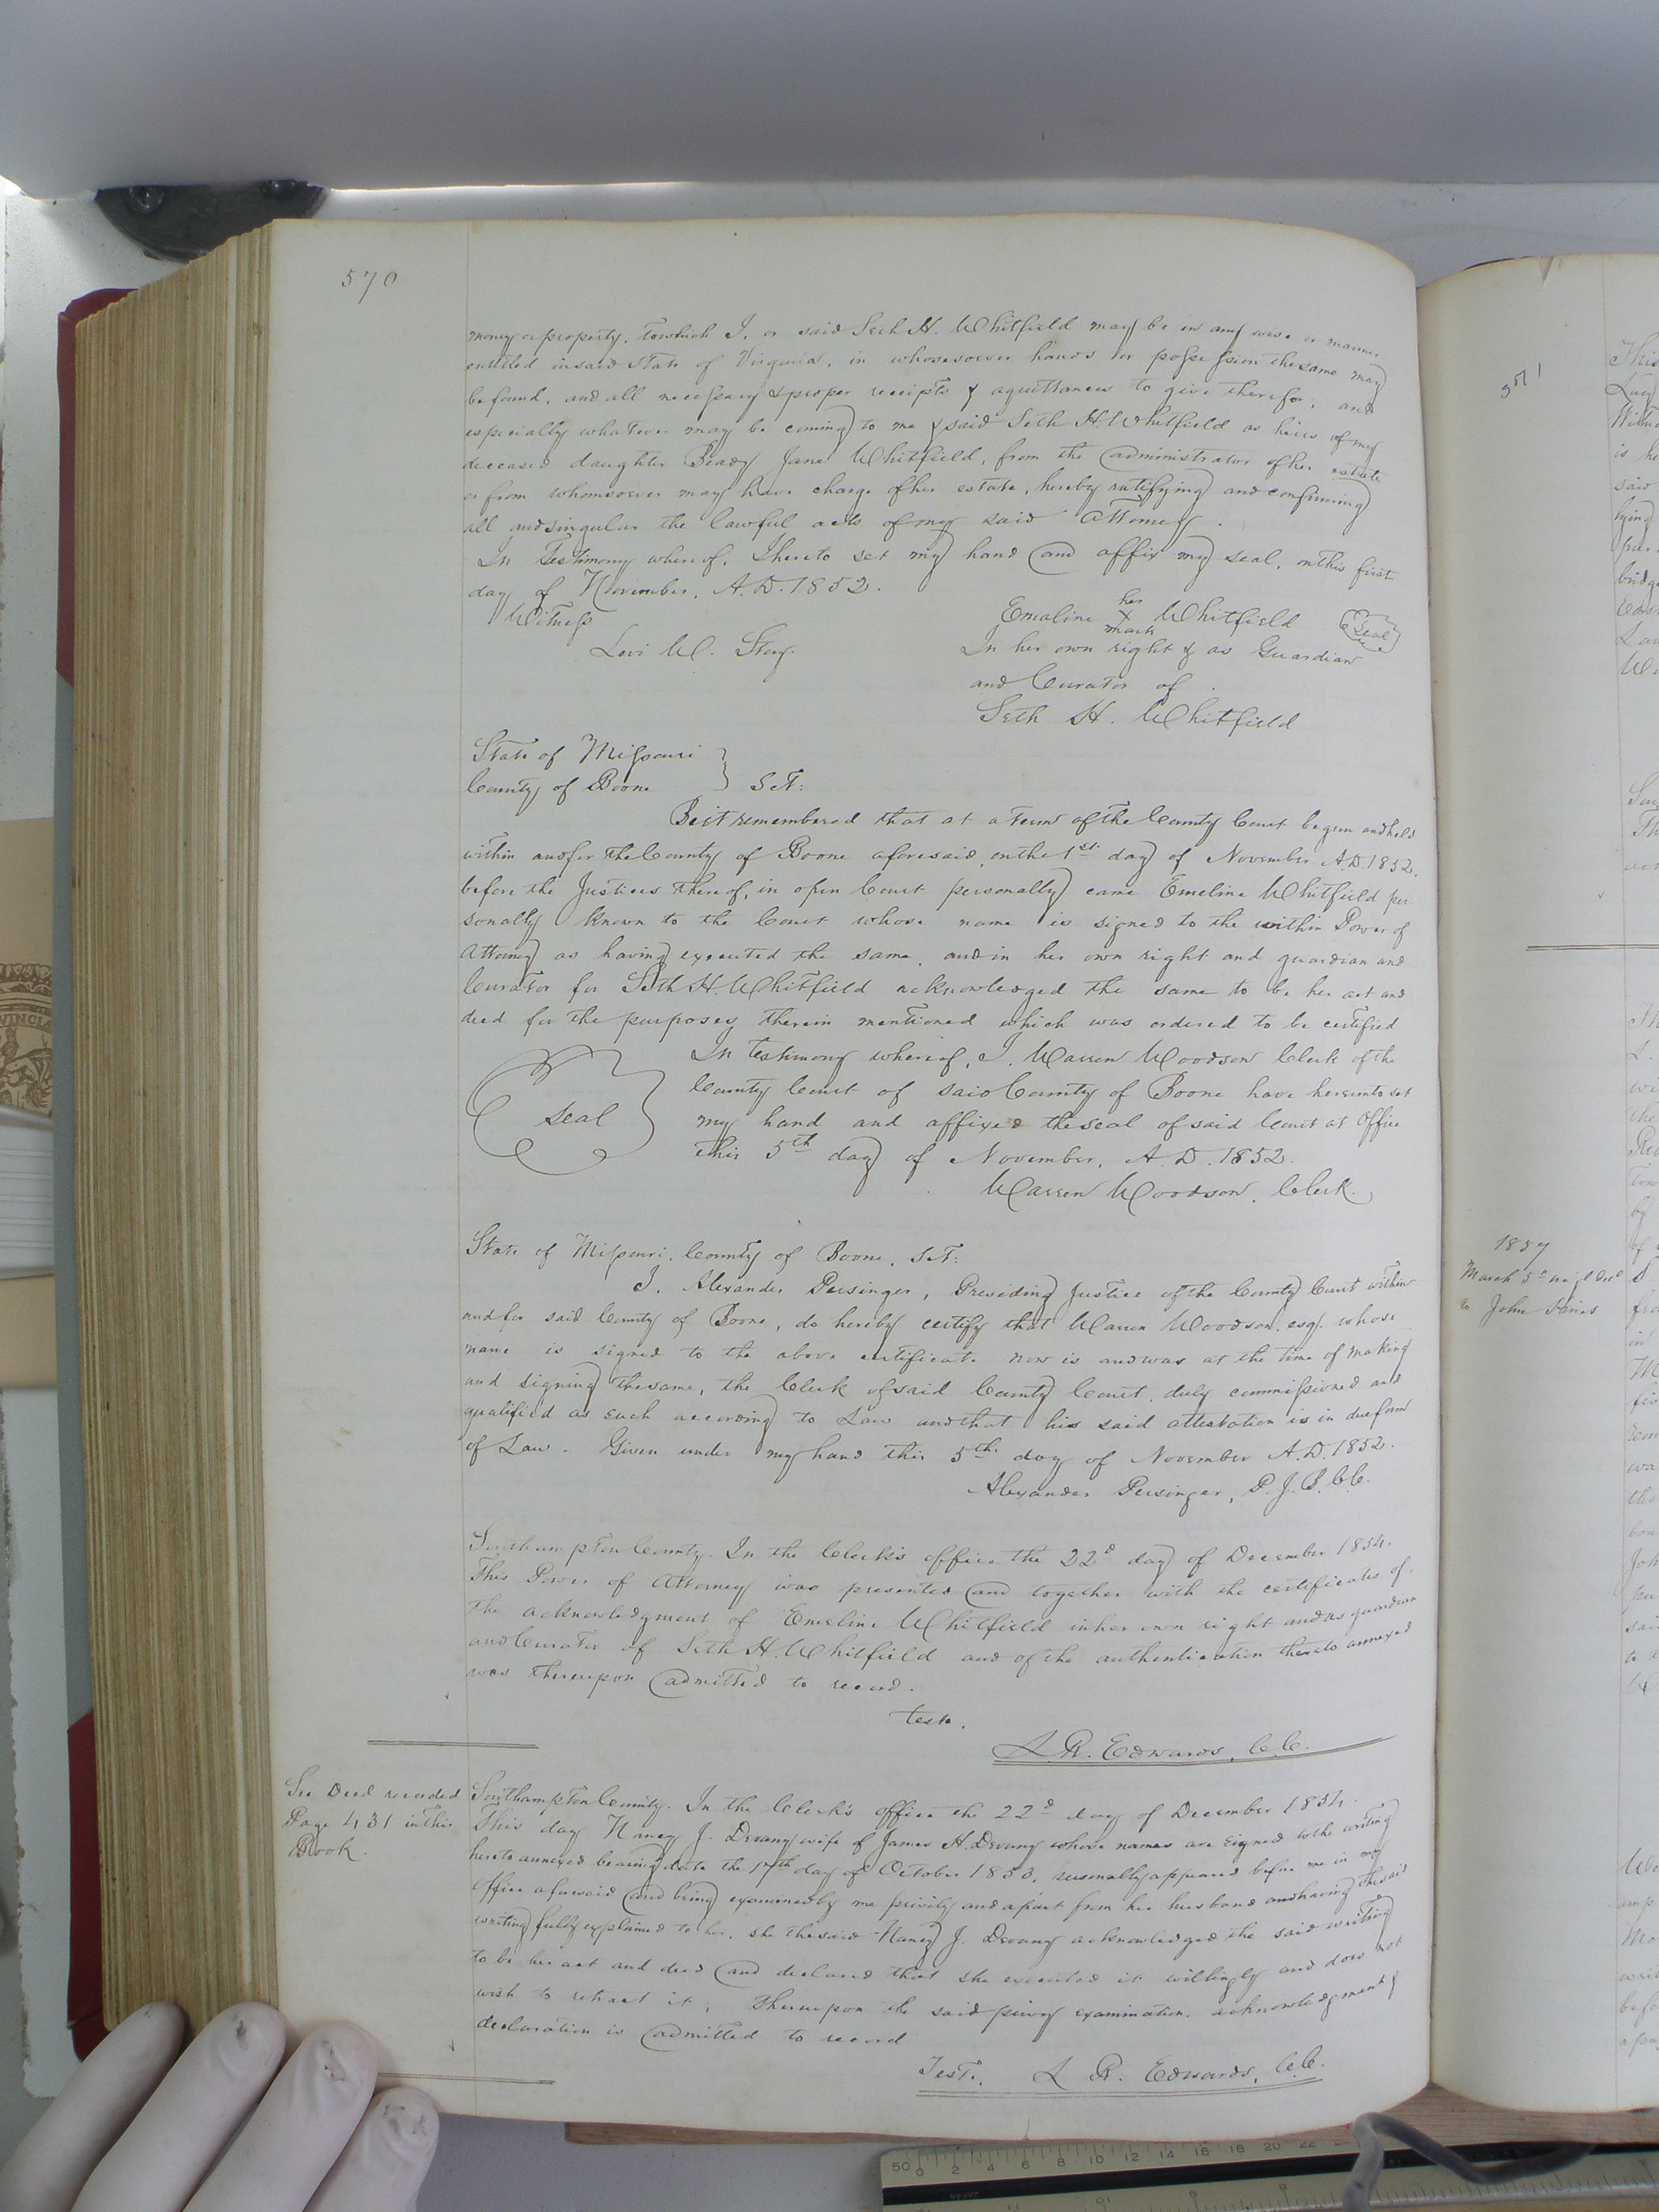 570
money or property, to which I, or said Seth H. Whitfield may be in any wise or manner
entitled in said State of Virginia, in whosesoever hands or possession the same may
be found, and all necessary & proper receipts & aquittances to give therefor, and
especially whatever may be coming to me & said Seth H. Whitfield as heirs of my
deceased daughter Beady Jane Whitfield, from the administrator of her estate
or from whomsoever may have charge of her estate, hereby ratifying and confirming
all and singular the lawful acts of my said Attorney.
In Testimony whereof, I hereto set my hand and affix my seal, on this first
day of November, A.D. 1852.
Witness
her
Emaline X Whitfield Seal
mark
Levi W. Stacy.
In her own right & as Guardian
and Curator of
Seth H. Whitfield
State of Missouri
County of Boone } SCt:
Be it remembered that at a Term of the County Court begun and held
within and for the County of Boone aforesaid, on the 1st day of November A.D. 1852,
before the Justices thereof, in open Court personally came Emeline Whitfield per
sonally known to the Court whose name is signed to the within Power of
Attorney as having executed the same, and in her own right and guardian and
Curator for Seth H. Whitfield acknowledged the same to be her act and
deed for the purposes therein mentioned which was ordered to be certified
In testimony whereof, I, Warren Woodson Clerk of the
County Court of said County of Boone have hereunto set
seal
my hand and affixed the seal of said Court at Office
this 5th day of November, A.D. 1852.
Warren Woodson, Clerk.
State of Missouri, County of Boone, SCt:
I, Alexander Persinger, Presiding Justice of the County Court within
and for said County of Boone, do hereby certify that Warren Woodson, esq. whose
name is signed to the above certificate now is and was at the time of making
and signing the same, the Clerk of said County Court, duly commissioned and
qualified as such according to Law and that his said attestation is in due form
of Law. Given under my hand this 5th day of November A.D. 1852.
Alexander Persinger, P.J.B.C.C.
Southampton County. In the Clerk's office the 22d day of December 1854.
This Power of Attorney was presented and together with the certificates of
the acknowledgment of Emeline Whitfield in her own right and as guardian
and Curator of Seth H. Whitfield and of the authentication thereto annexed
was thereupon admitted to record.
Teste,
L.R. Edwards, C.C.
See Deed recorded
Page 431 in this
Book.
Southampton County. In the Clerk's office the 22d day of December 1854.
This day Nancy J. Devany wife of James H. Devany whose names are signed to the writing
hereto annexed bearing date the 17th day of October 1853, personally appeared before me in my
office aforesaid and being examined by me privily and apart from her husband and having the said
writing fully explained to her, she the said Nancy J. Devany acknowledged the said writing
to be her act and deed and declared that she executed it willingly and does not
wish to retract it; Thereupon the said privy examination, acknowledgment &
declaration is admitted to record
Teste, L R. Edwards, C.C.
571
1857
March 5th
to John